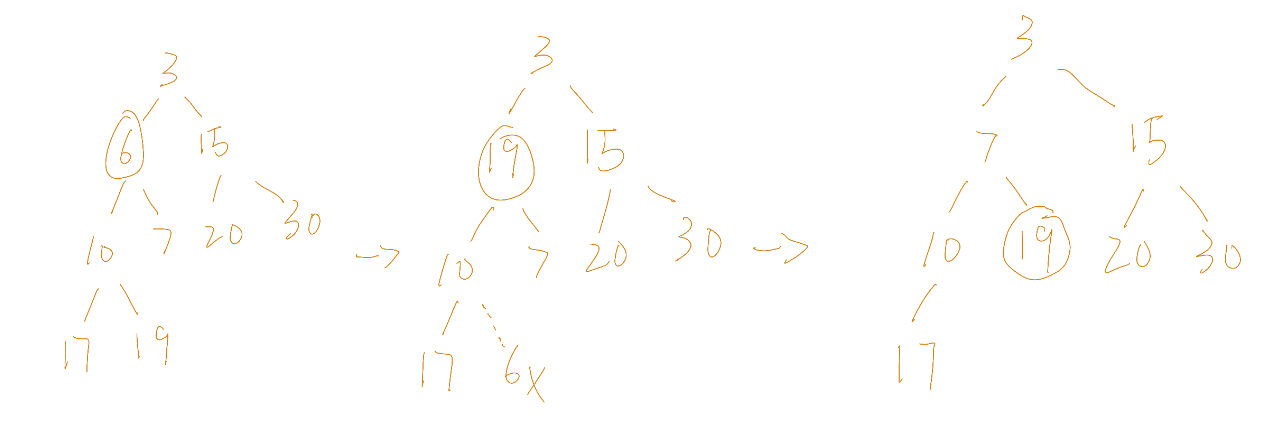 3
6 15
10 7 20 30
17 19
→
3
19 15
10 7 20 30
17 6x
→
3
7 15
10 19 20 30
17